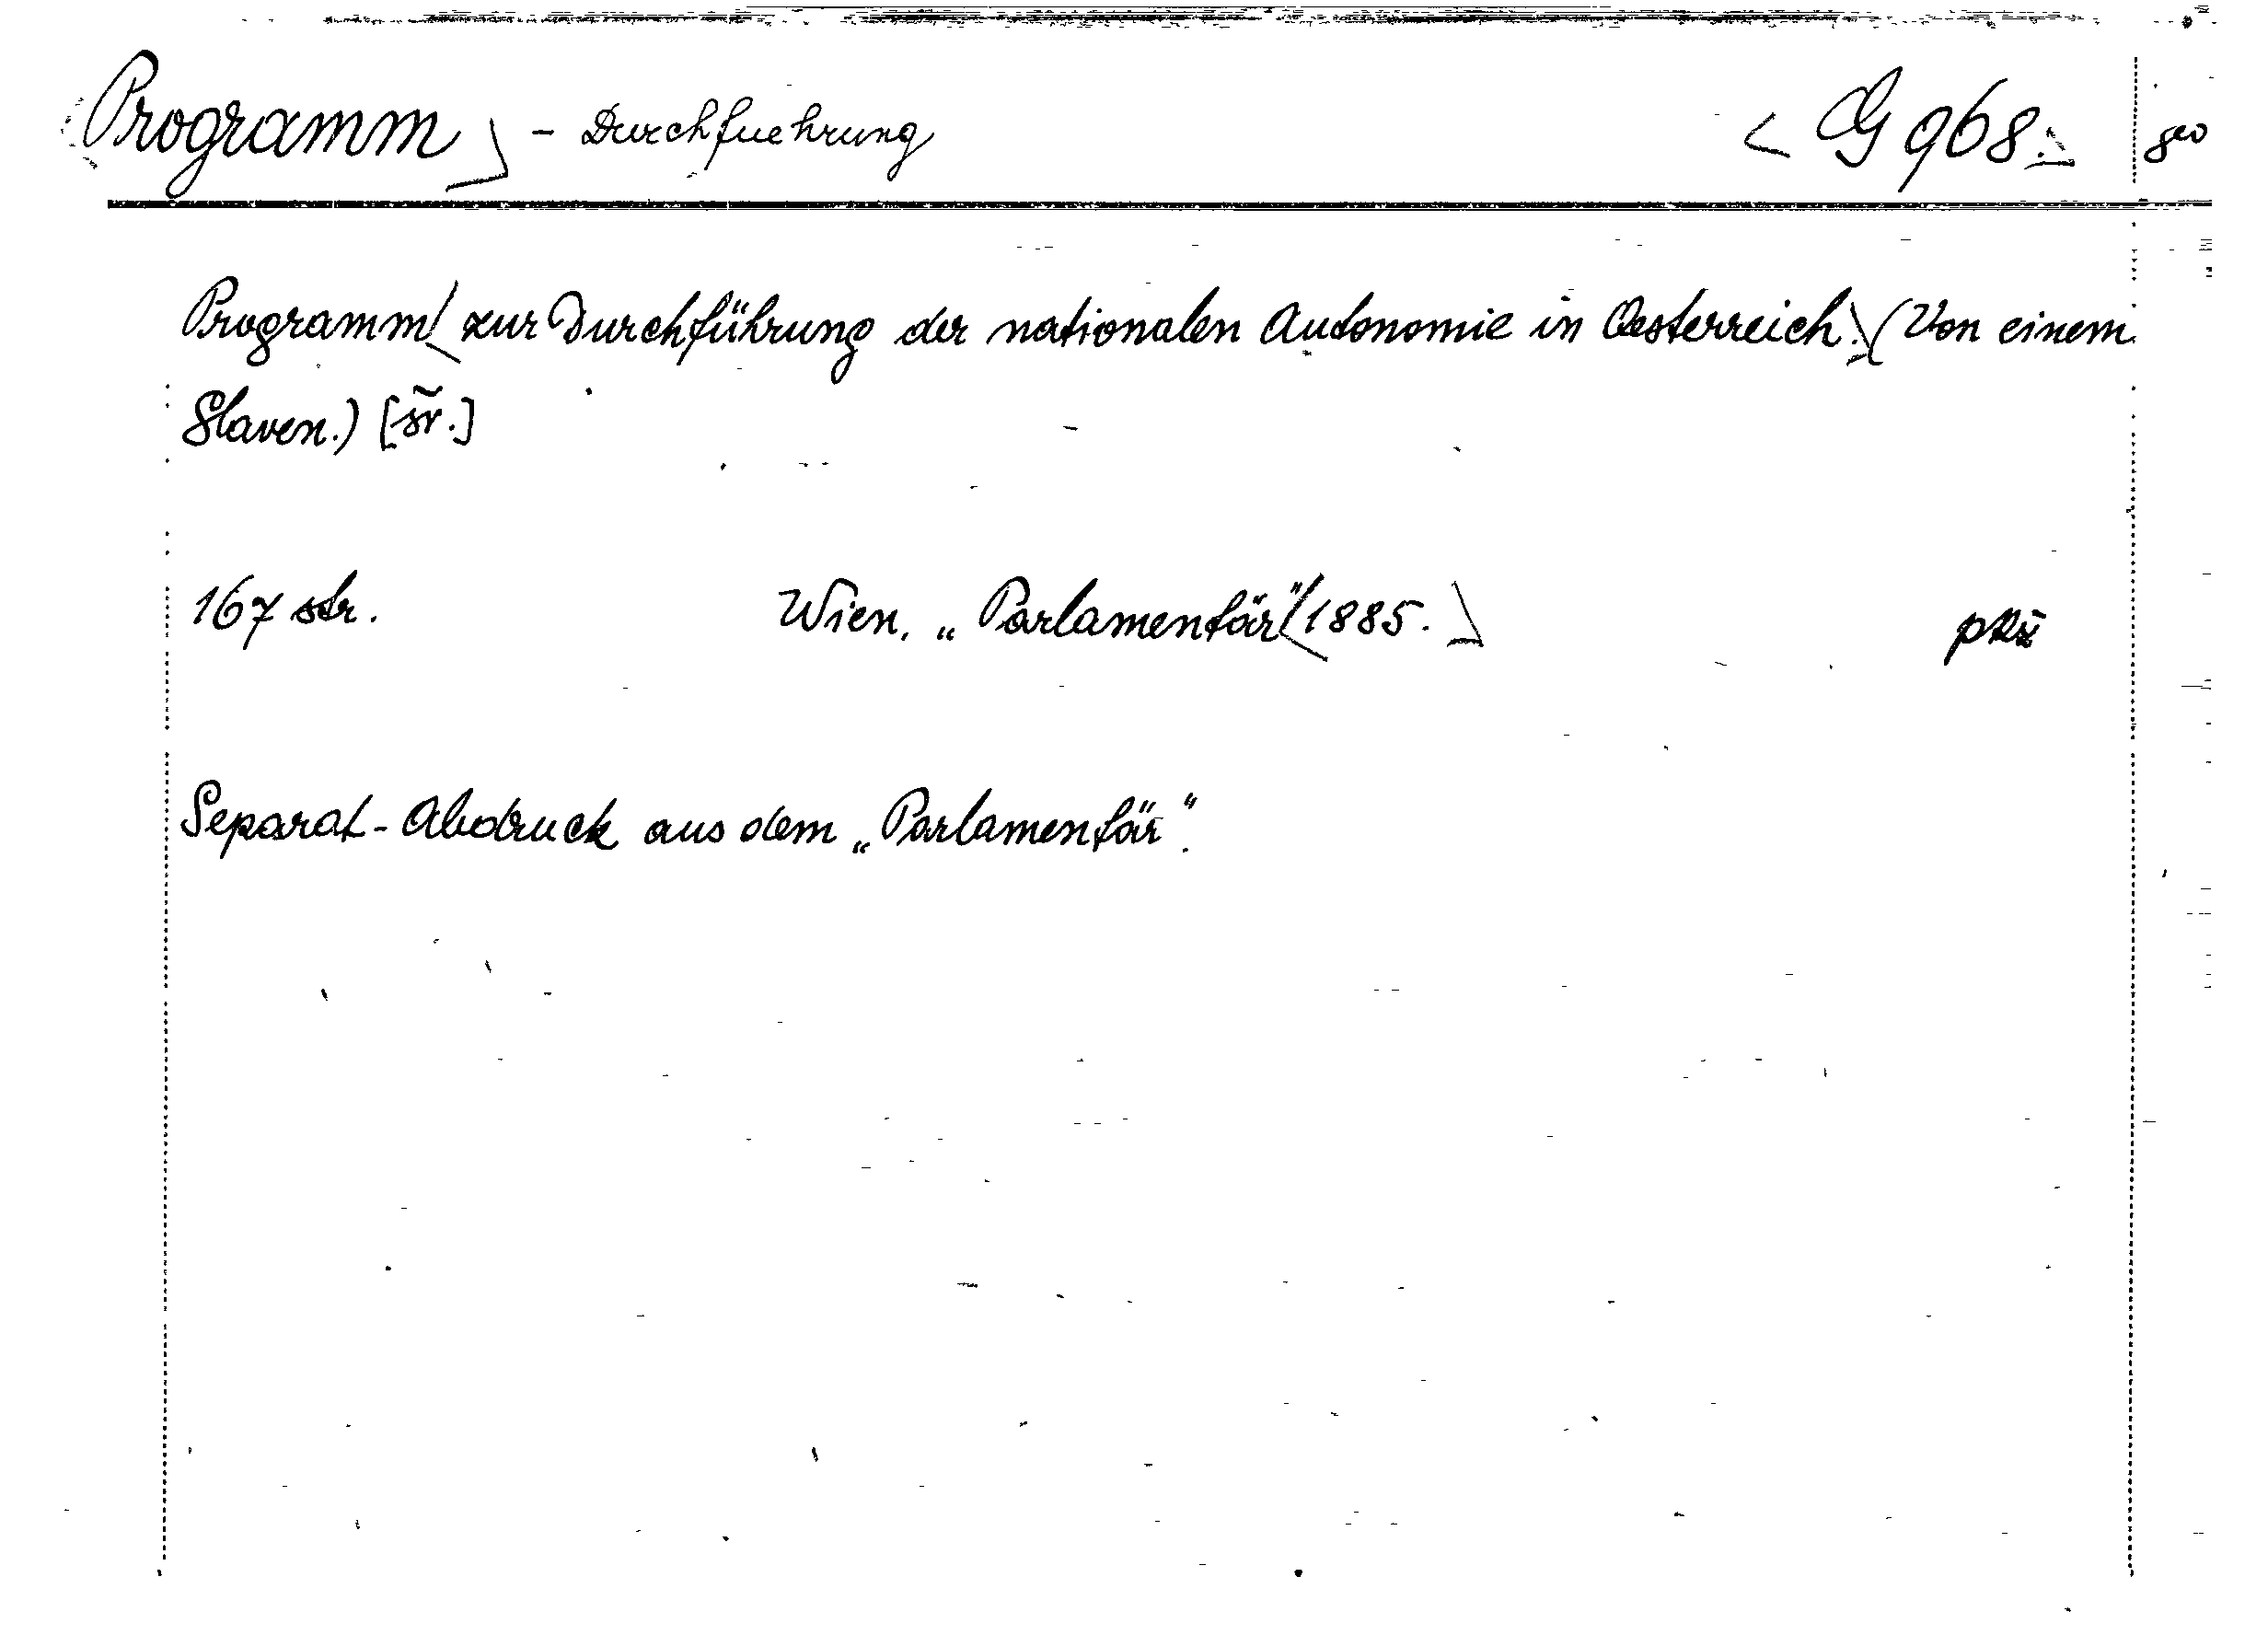 Programm - Durchfuehrung < G 968 > 8°
Programm zur Durchführung der nationalen Autonomie in Oesterreich. (Von einem
Slaven.) [šr.]
167 str. Wien, „Parlamentär" 1885.
Separat-Abdruck aus dem „Parlamentär".